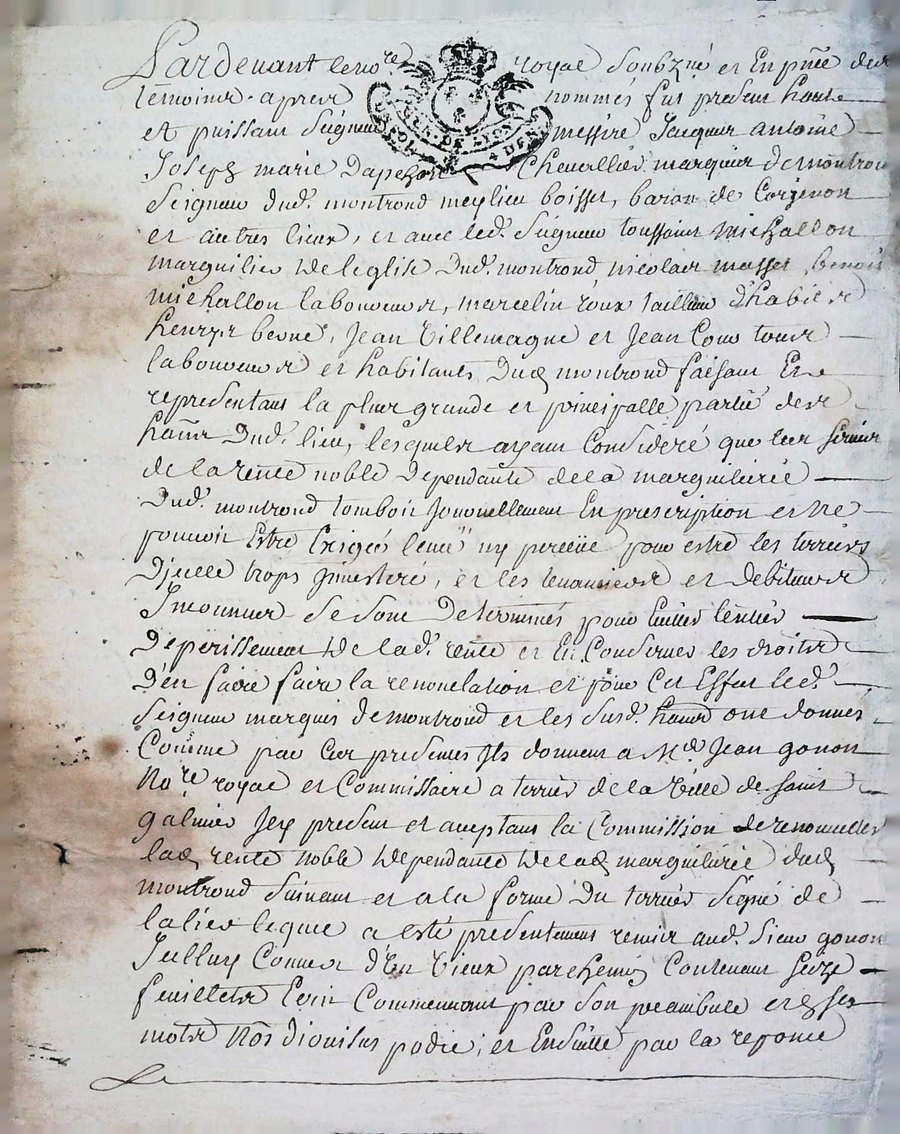 Pardevant le no.re royal soubzné et en pnce des
temoins apres nommés fut present haut
et puissant seigneur messire Jacques antoine
Joseph marie Dapchon Chevallier marquis de montrond
Seigneur dud. montrond meylieu boisset, baron de Corgenon
et autres lieux, et avec led. seigneur toussaint michallon
marguilier de leglise dud. montrond nicolas masset, benoit
michallon laboureurs, marcelin roux tailleur d'habits
henrys berne, Jean Villemagne et Jean tous
laboureurs et habitants dud montrond faisant et
representans la plus grande et principalle partie des
hans dud. lieu, lesquels ayant Consideré que les servis
de la rente noble Dependante de la marguilerie
dud. montrond tomboit journellement En prescription et ne
pouvoit Estre Exigée ny perceüe pour estre les terriers
D'icelle trops, et les tenanciers et debiteurs
Inconnus se sont Determinés pour Eviter lentier
Deperissement de lad. rente et En Conserver les droits
D'en faire faire la renovelation et pour Cet Effet led.
Seigneur marquis de montrond et les susd. hans ont donnés
Comme par Ces presentes Ils donnent a Me. Jean gonon
No.re royal et Commissaire a terrier de la Ville de saint
galmier Icy present et aceptant la Commission de renouveller
lad rente noble Dependante de lad marguilerie dud
montrond suivant et a la forme du terrier signé de
lalier lequel a esté presentement remis aud. sieur gonon
Jcelluy Couvert d'un Vieux parchemin Contenant seize
feuillets Ecrit Commencant par son preambule et ses
mots Nos Dionisus podii, et Ensuitte par la reponce